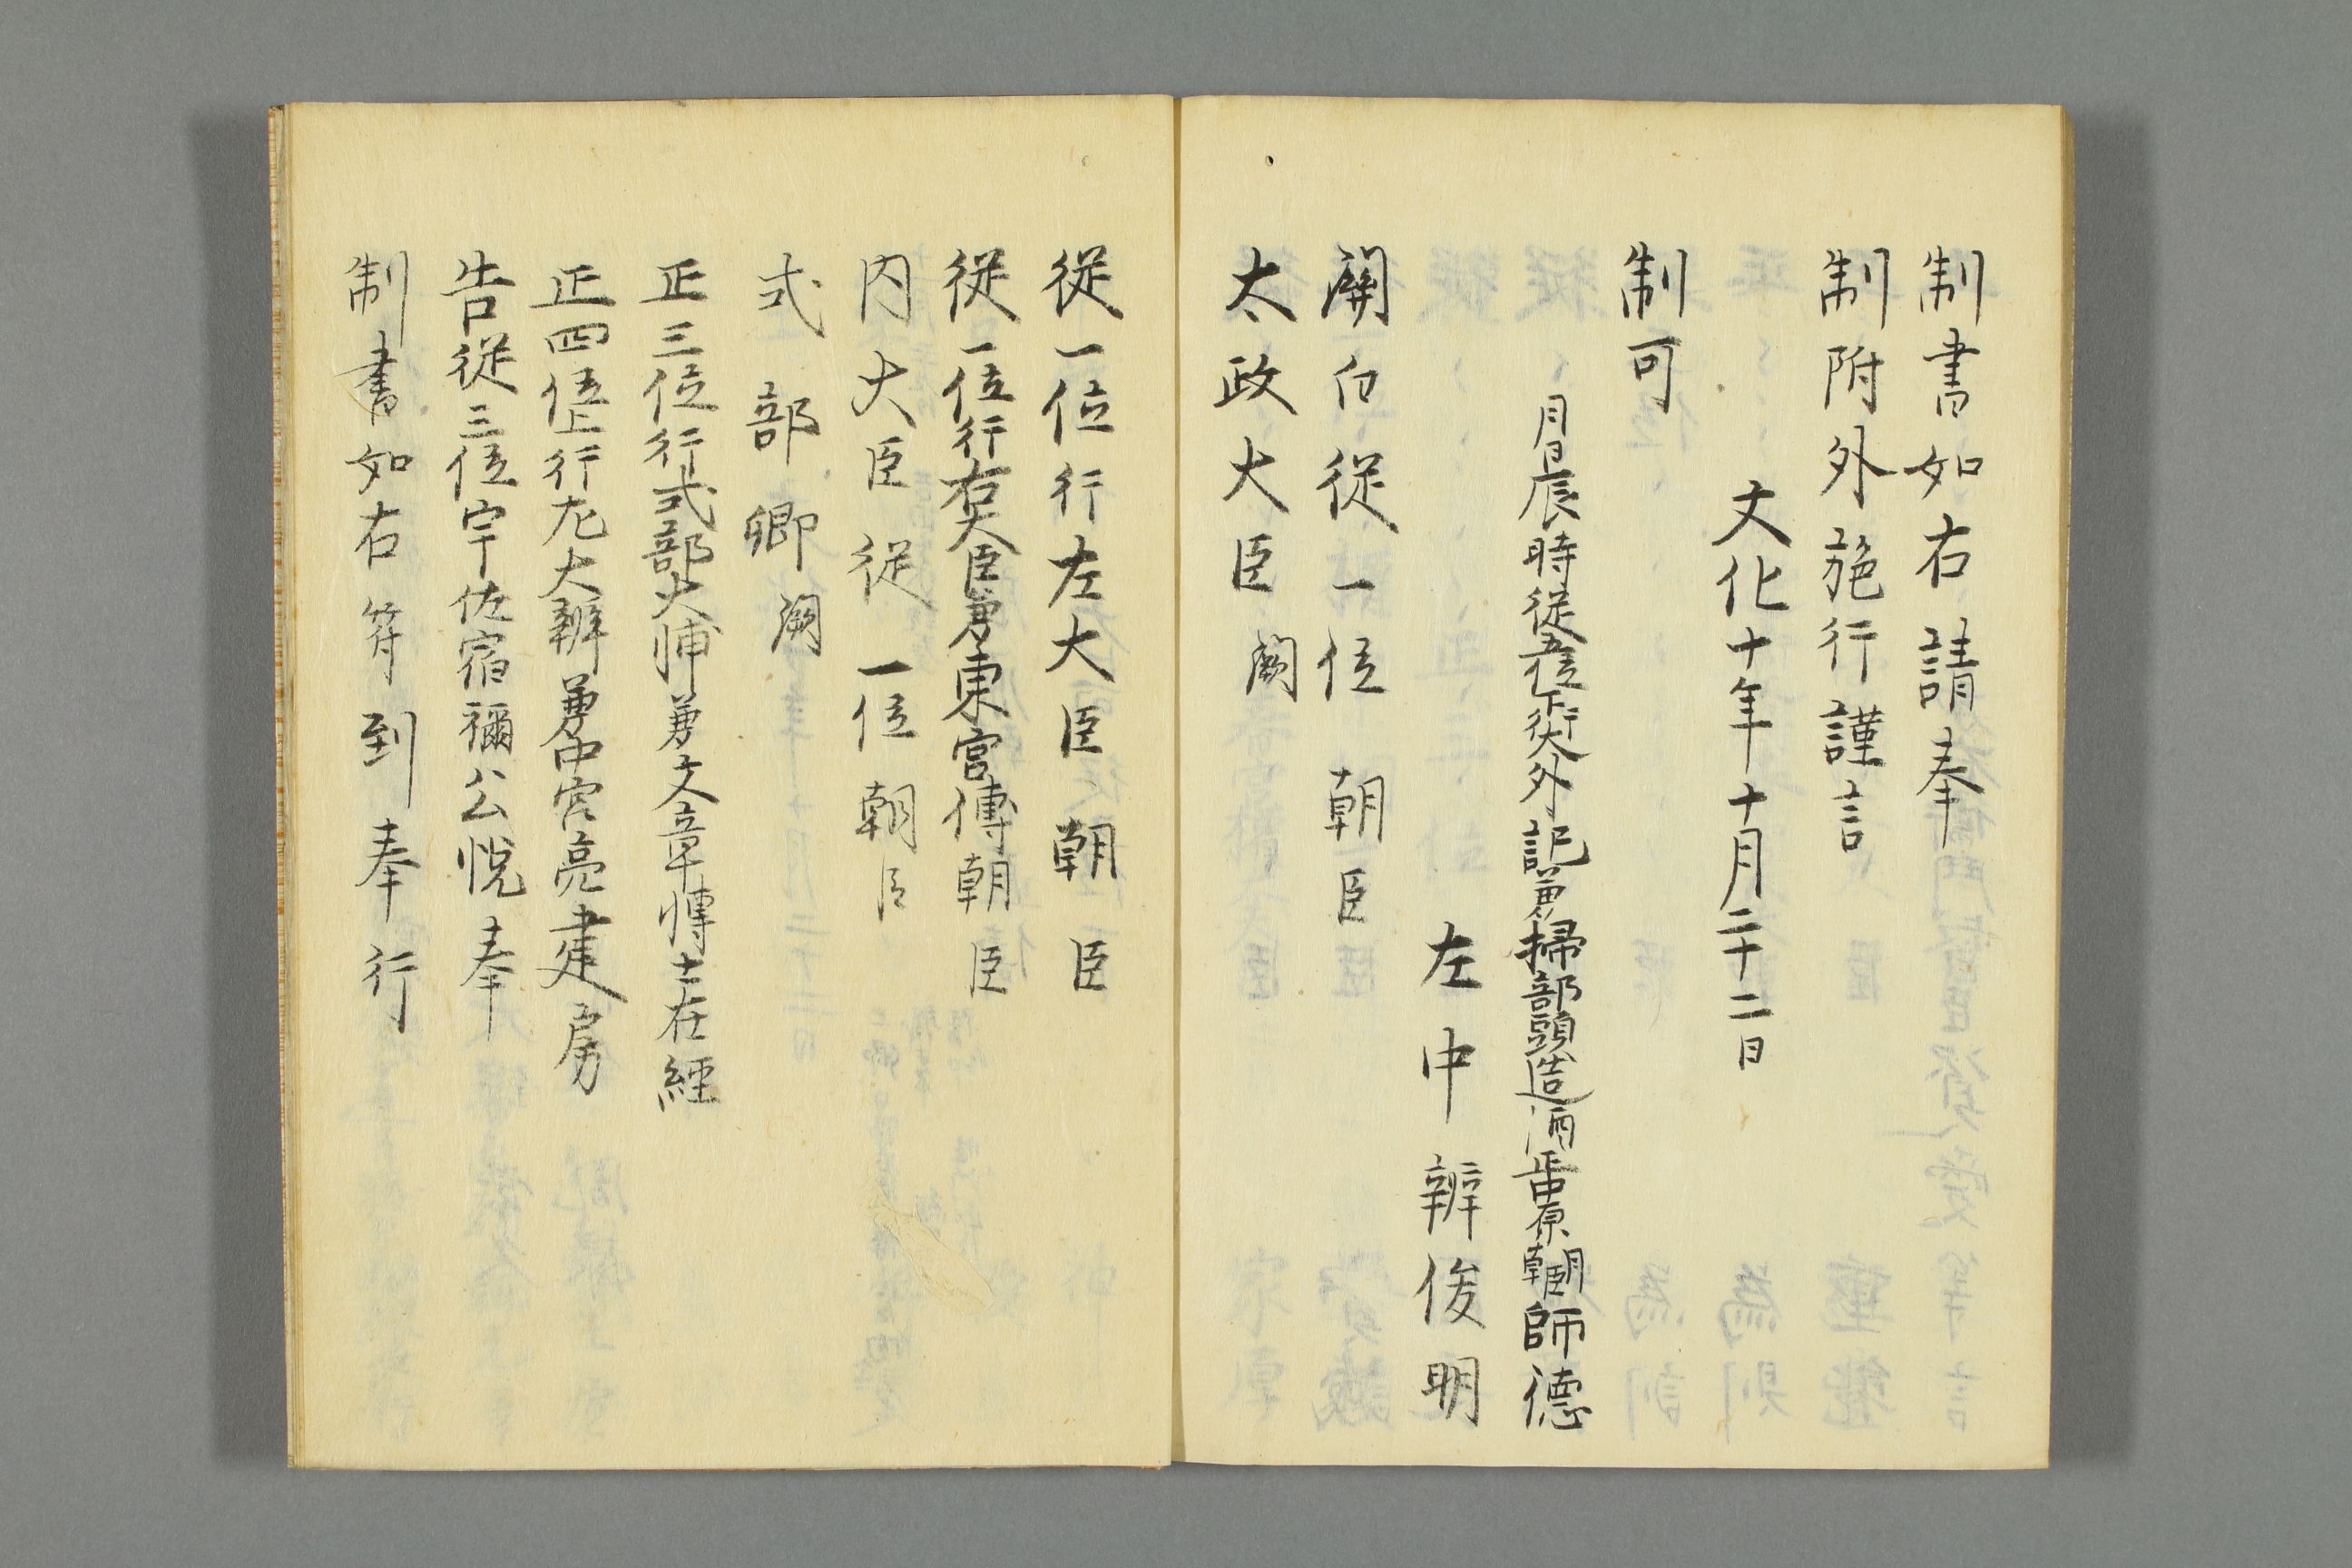 制書如右請奉
制附外施行謹言
文化十年十月二十二日
制可
月日辰時從五位下行大外記兼掃部頭造酒正中原朝臣師德
左中辨俊明
關白從一位朝臣
太政大臣闕
從一位行左大臣朝臣
從一位行右大臣兼東宮傅朝臣
内大臣從一位朝臣
式部卿闕
正三位行式部大輔兼文章博士在經
正四位上行左大辨兼中宮亮建房
告從三位宇佐宿禰公悅奉
制書如右符到奉行